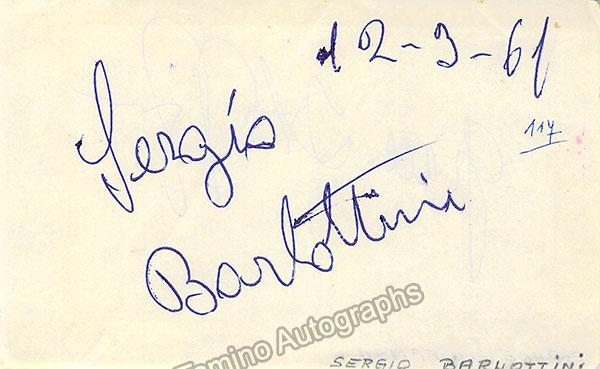 12-3-61
117
Sergio
Barlottini
Tamino Autographs
SERGIO BARLOTTINI